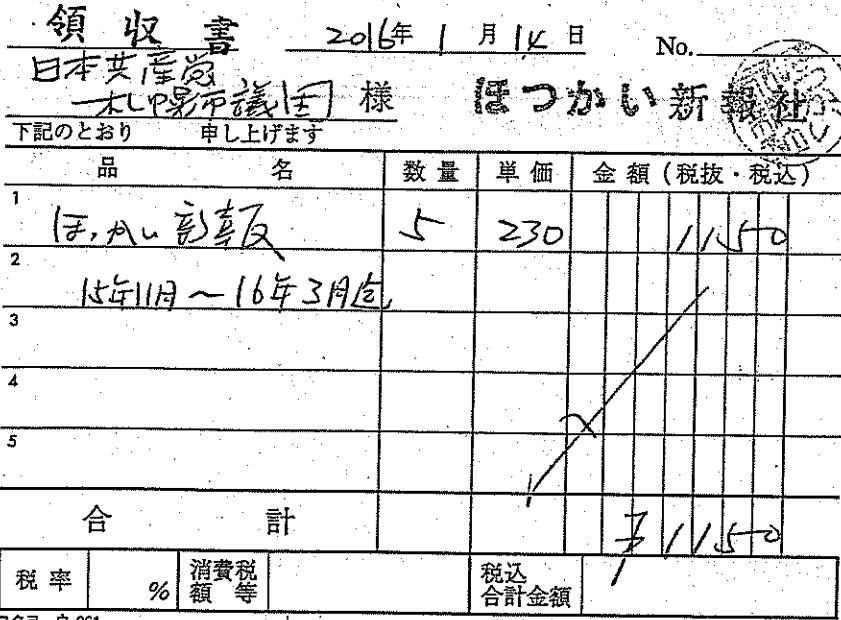 領収書 2016年1月14日 No.
日本共産党
札幌市議団 様 ほっかい新報社
下記のとおり 申し上げます
品名 数量 単価 金額(税抜・税込)
1 ほっかい新報 5 230 1150
2 15年11月〜16年3月迄
3
4
5
合計 ¥1150
税率 % 消費税額等 税込合計金額